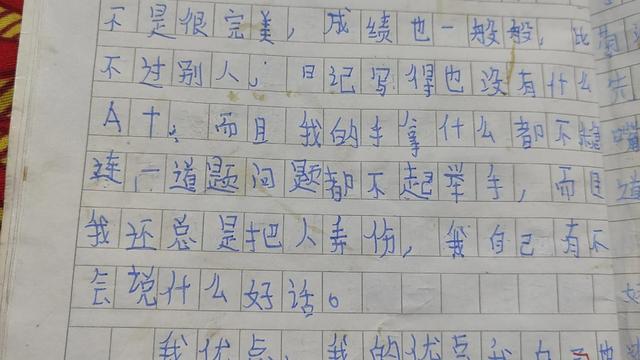 不是很完美，成绩也一般般，比
不过别人。日记写得也没有什么
A+，而且我的手拿什么都不稳
连一道题问题都不起举手，而且
我还总是把人弄伤，我自己有不
会说什么好话。
我优点，我的优点我自